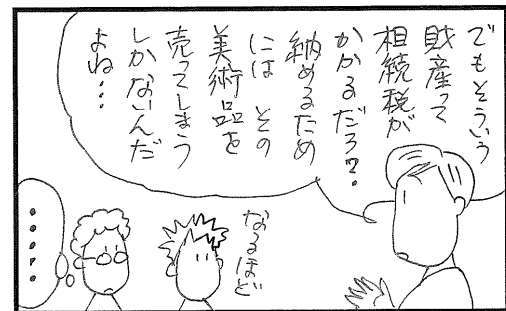 でもそういう
財産って
相続税が
かかるだろ?
納めるため
には その
美術品を
売ってしまう
しかないんだ
よね…
なるほど
・・・・・・